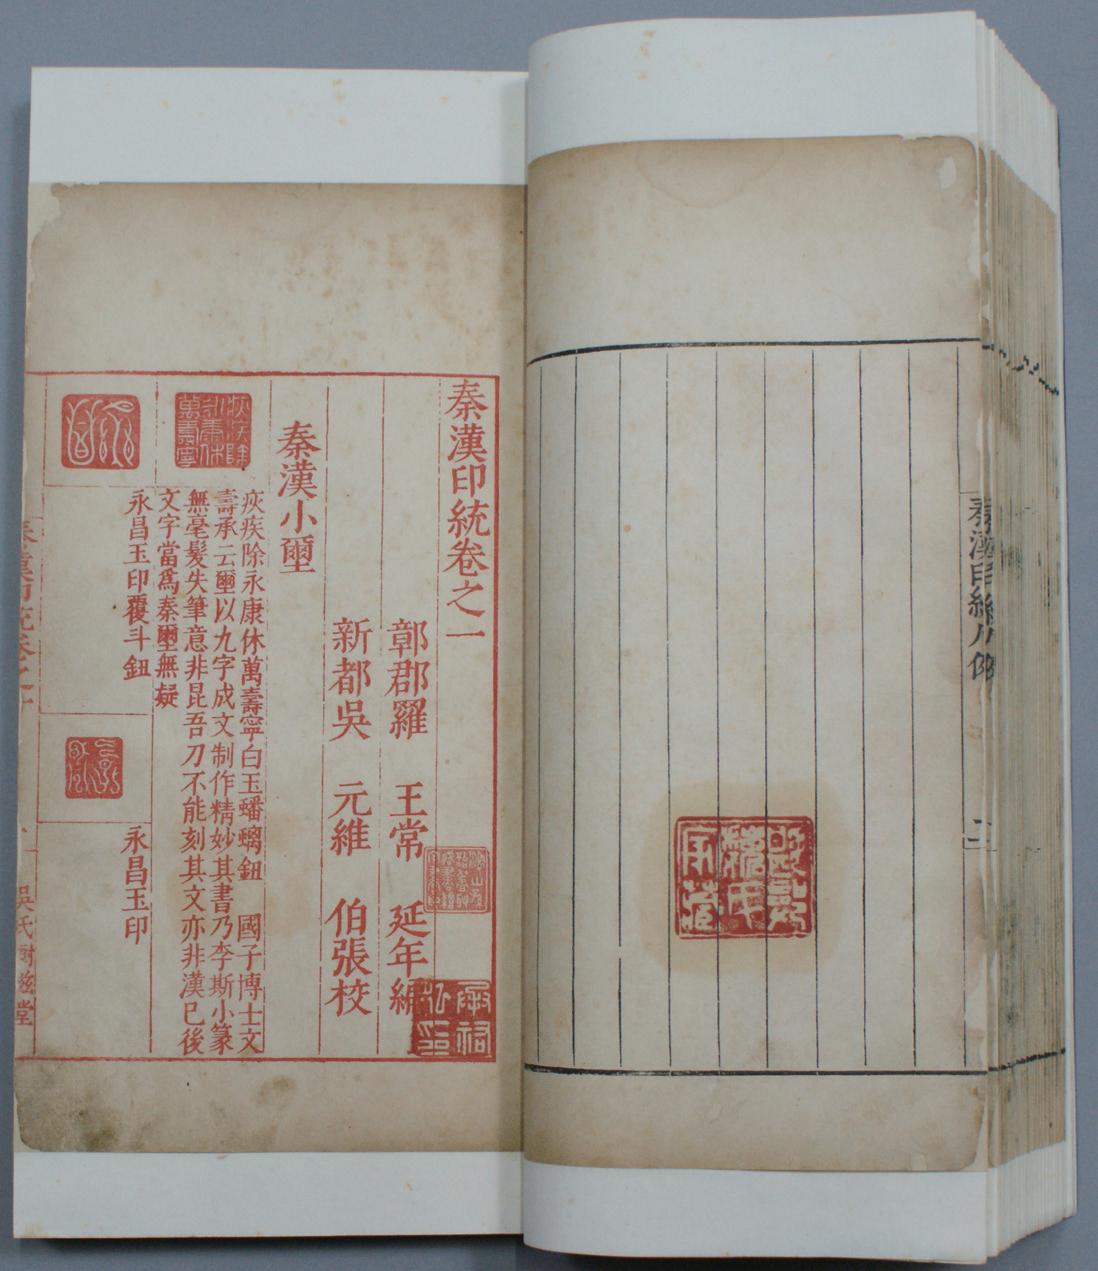 秦漢印統卷之一
鄣郡羅 王常 延年編
新都吳 元維 伯張校
秦漢小璽
疢疾除永康休萬壽寧白玉蟠螭鈕 國子博士文
壽承云璽以九字成文制作精妙其書乃李斯小篆
無毫髮失筆意非昆吾刀不能刻其文亦非漢已後
文字當爲秦璽無疑
永昌玉印覆斗鈕
永昌玉印
疢疾除永康休萬壽寧
永昌
永昌
吳氏樹滋堂